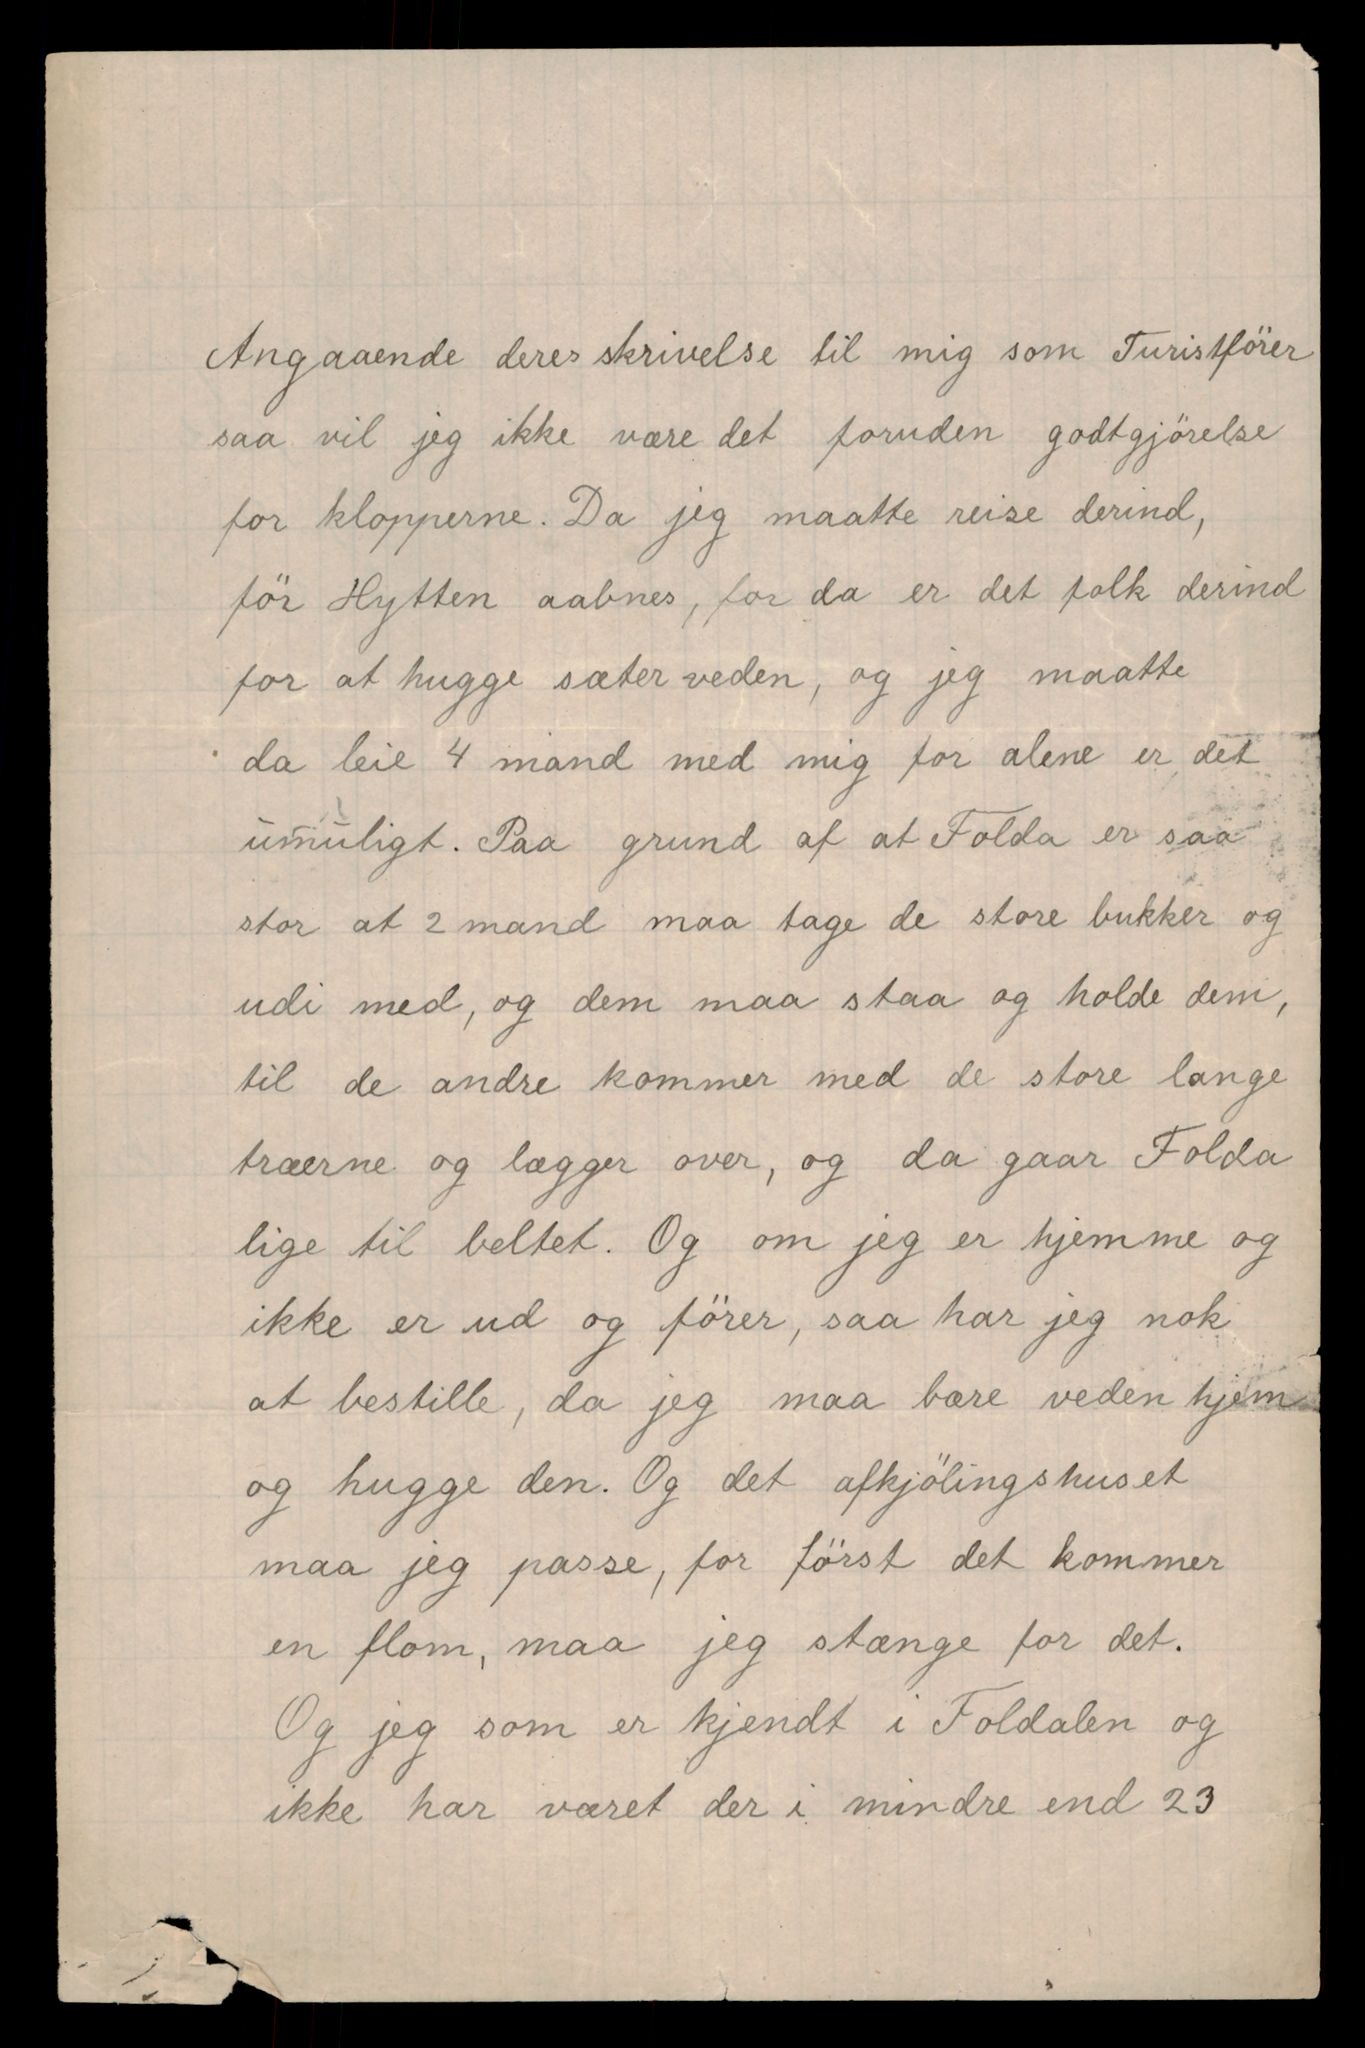 Angaaende deres skrivelse til mig som Turistförer
saa vil jeg ikke være det foruden godtgjörelse
for klopperne. Da jeg maatte reise derind,
för Hytten aabnes, for da er det folk derind
for at hugge sæter veden, og jeg maatte
da leie 4 mand med mig for alene er det
umuligt. Paa grund af at Folda er saa
stor at 2 mand maa tage de store bukker og
udi med, og dem maa staa og holde dem,
til de andre kommer med de store lange
træerne og lægger over, og da gaar Folda
lige til beltet. Og om jeg er hjemme og
ikke er ud og förer, saa har jeg nok
at bestille, da jeg maa bære veden hjem
og hugge den. Og det afkjölingshuset
maa jeg passe, for först det kommer
en flom, maa jeg stænge for det.
Og jeg som er kjendt i Foldalen og
ikke har været der i mindre end 23